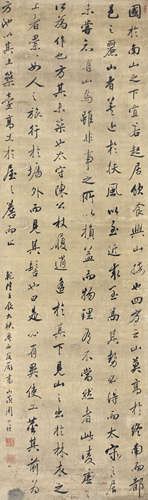 國於南山之下宜若起居飲食與山接也四方之山莫高於終南而都
邑之麗山者莫近於扶風以至近求最高其勢必得而太守之居
未嘗知有山焉雖非事之所以損益而物理有不當然者此凌虛之所
以為作也方其未築也太守陳公杖履逍遙於其下見山之出於林木之
上者累累如人之旅行於牆外而見其髻也曰是必有異使工鑿其前為
方池以其土築臺高出於屋之簷而止 乾隆